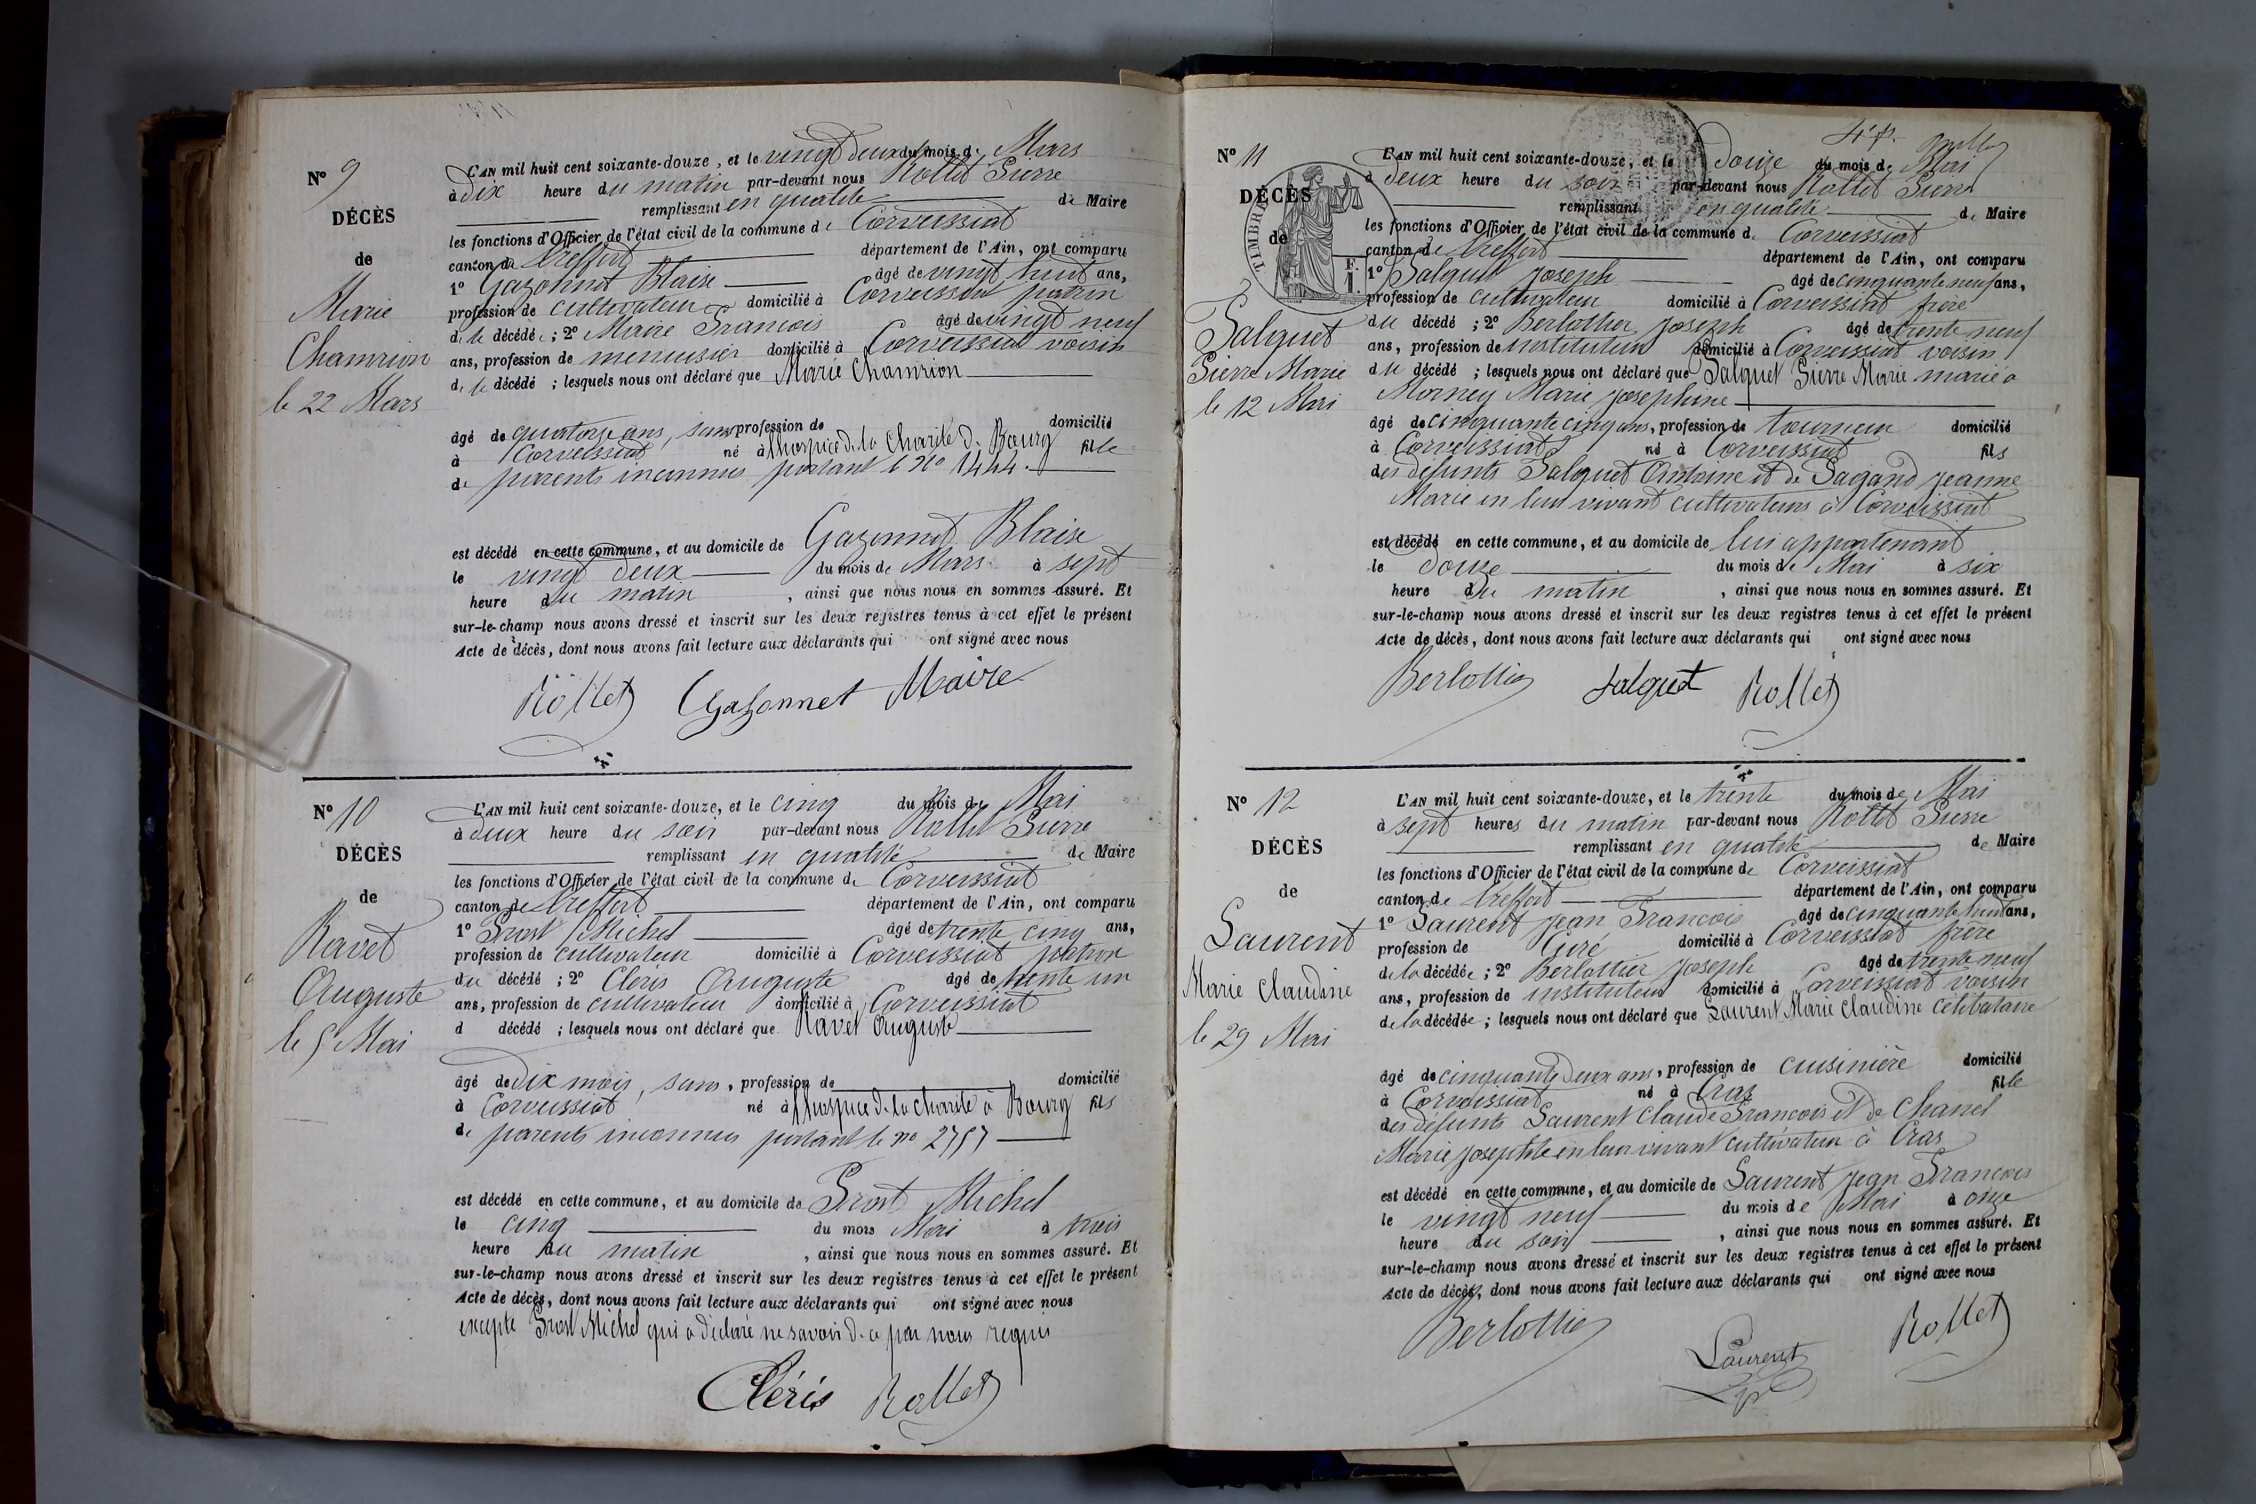 Nº 9
DÉCÈS
de
Marie
Chamrion
le 22 Mars
L'AN mil huit cent soixante-douze, et le vingt deux du mois de Mars
à dix heure du matin par-devant nous Rollet Pierre
remplissant en qualité de Maire
les fonctions d'Officier de l'état civil de la commune de Corveissiat
canton de Treffort département de l'Ain, ont comparu
1º Gazonnet Blaise âgé de vingt huit ans,
profession de cultivateur domicilié à Corveissiat patron
de le décédée ; 2º Maire François âgé de vingt neuf
ans, profession de menuisier domicilié à Corveissiat voisin
de le décédé ; lesquels nous ont déclaré que Marie Chamrion
âgé de quatorze ans, sans profession de domicilié
à Corveissiat né à l'hospice de la Charité de Bourg fille
de parents inconnus portant le No 1444
est décédé en cette commune, et au domicile de Gazonnet Blaise
le vingt deux du mois de Mars à sept
heure du matin, ainsi que nous nous en sommes assuré. Et
sur-le-champ nous avons dressé et inscrit sur les deux registres tenus à cet effet le présent
Acte de décès, dont nous avons fait lecture aux déclarants qui ont signé avec nous
Rollet Gazonnet Maire
Nº 10
DÉCÈS
de
Ravet
Auguste
le 5 Mai
L'AN mil huit cent soixante-douze, et le cinq du mois de Mai
à deux heure du soir par-devant nous Rollet Pierre
remplissant en qualité de Maire
les fonctions d'Officier de l'état civil de la commune de Corveissiat
canton de Treffort département de l'Ain, ont comparu
1º Prost Michel âgé de trente cinq ans,
profession de cultivateur domicilié à Corveissiat patron
du décédé ; 2º Cléris Auguste âgé de trente un
ans, profession de cultivateur domicilié à Corveissiat
d décédé ; lesquels nous ont déclaré que Ravet Auguste
âgé de dix mois, sans, profession de domicilié
à Corveissiat né à l'hospice de la charité à Bourg fils
de parents inconnus portant le no 2757
est décédé en cette commune, et au domicile de Prost Michel
le cinq du mois Mai à trois
heure du matin, ainsi que nous nous en sommes assuré. Et
sur-le-champ nous avons dressé et inscrit sur les deux registres tenus à cet effet le présent
Acte de décès, dont nous avons fait lecture aux déclarants qui ont signé avec nous
excepté Prost Michel qui a déclaré ne savoir de ce par nous requis
Cléris Rollet
4e p. Rollet
Nº 11
DÉCÈS
de
TIMBRE
F.
1.
Salquet
Pierre Marie
le 12 Mai
L'AN mil huit cent soixante-douze, et le douze du mois de Mai
à deux heure du soir par-devant nous Rollet Pierre
remplissant en qualité de Maire
les fonctions d'Officier de l'état civil de la commune de Corveissiat
canton de Treffort département de l'Ain, ont comparu
1º Salquet Joseph âgé de cinquante neuf ans,
profession de cultivateur domicilié à Corveissiat frère
du décédé ; 2º Berlottier Joseph âgé de trente neuf
ans, profession de instituteur domicilié à Corveissiat voisin
du décédé ; lesquels nous ont déclaré que Salquet Pierre Marie marié a
Morney Marie Josephine
âgé de cinquante cinq ans, profession de tourneur domicilié
à Corveissiat né à Corveissiat fils
des défunts Salquet Antoine et de Pagand Jeanne
Marie en leur vivant cultivateurs à Corveissiat
est décédé en cette commune, et au domicile de lui appartenant
le douze du mois de Mai à six
heure du matin, ainsi que nous nous en sommes assuré. Et
sur-le-champ nous avons dressé et inscrit sur les deux registres tenus à cet effet le présent
Acte de décès, dont nous avons fait lecture aux déclarants qui ont signé avec nous
Berlottier Salquet Rollet
Nº 12
DÉCÈS
de
Laurent
Marie Claudine
le 29 Mai
L'AN mil huit cent soixante-douze, et le trente du mois de Mai
à sept heures du matin par-devant nous Rollet Pierre
remplissant en qualité de Maire
les fonctions d'Officier de l'état civil de la commune de Corveissiat
canton de Treffort département de l'Ain, ont comparu
1º Laurent Jean François âgé de cinquante huit ans,
profession de Curé domicilié à Corveissiat frère
de la décédée ; 2º Berlottier Joseph âgé de trente neuf
ans, profession de instituteur domicilié à Corveissiat voisin
de la décédée ; lesquels nous ont déclaré que Laurent Marie Claudine célibataire
âgé de cinquante deux ans, profession de cuisinière domicilié
à Corveissiat né à Cras fille
des défunts Laurent Claude François et de Chanel
Marie Josephte en leur vivant cultivateur à Cras
est décédé en cette commune, et au domicile de Laurent Jean François
le vingt neuf du mois de Mai à onze
heure du soir, ainsi que nous nous en sommes assuré. Et
sur-le-champ nous avons dressé et inscrit sur les deux registres tenus à cet effet le présent
Acte de décès, dont nous avons fait lecture aux déclarants qui ont signé avec nous
Berlottier Laurent Rollet